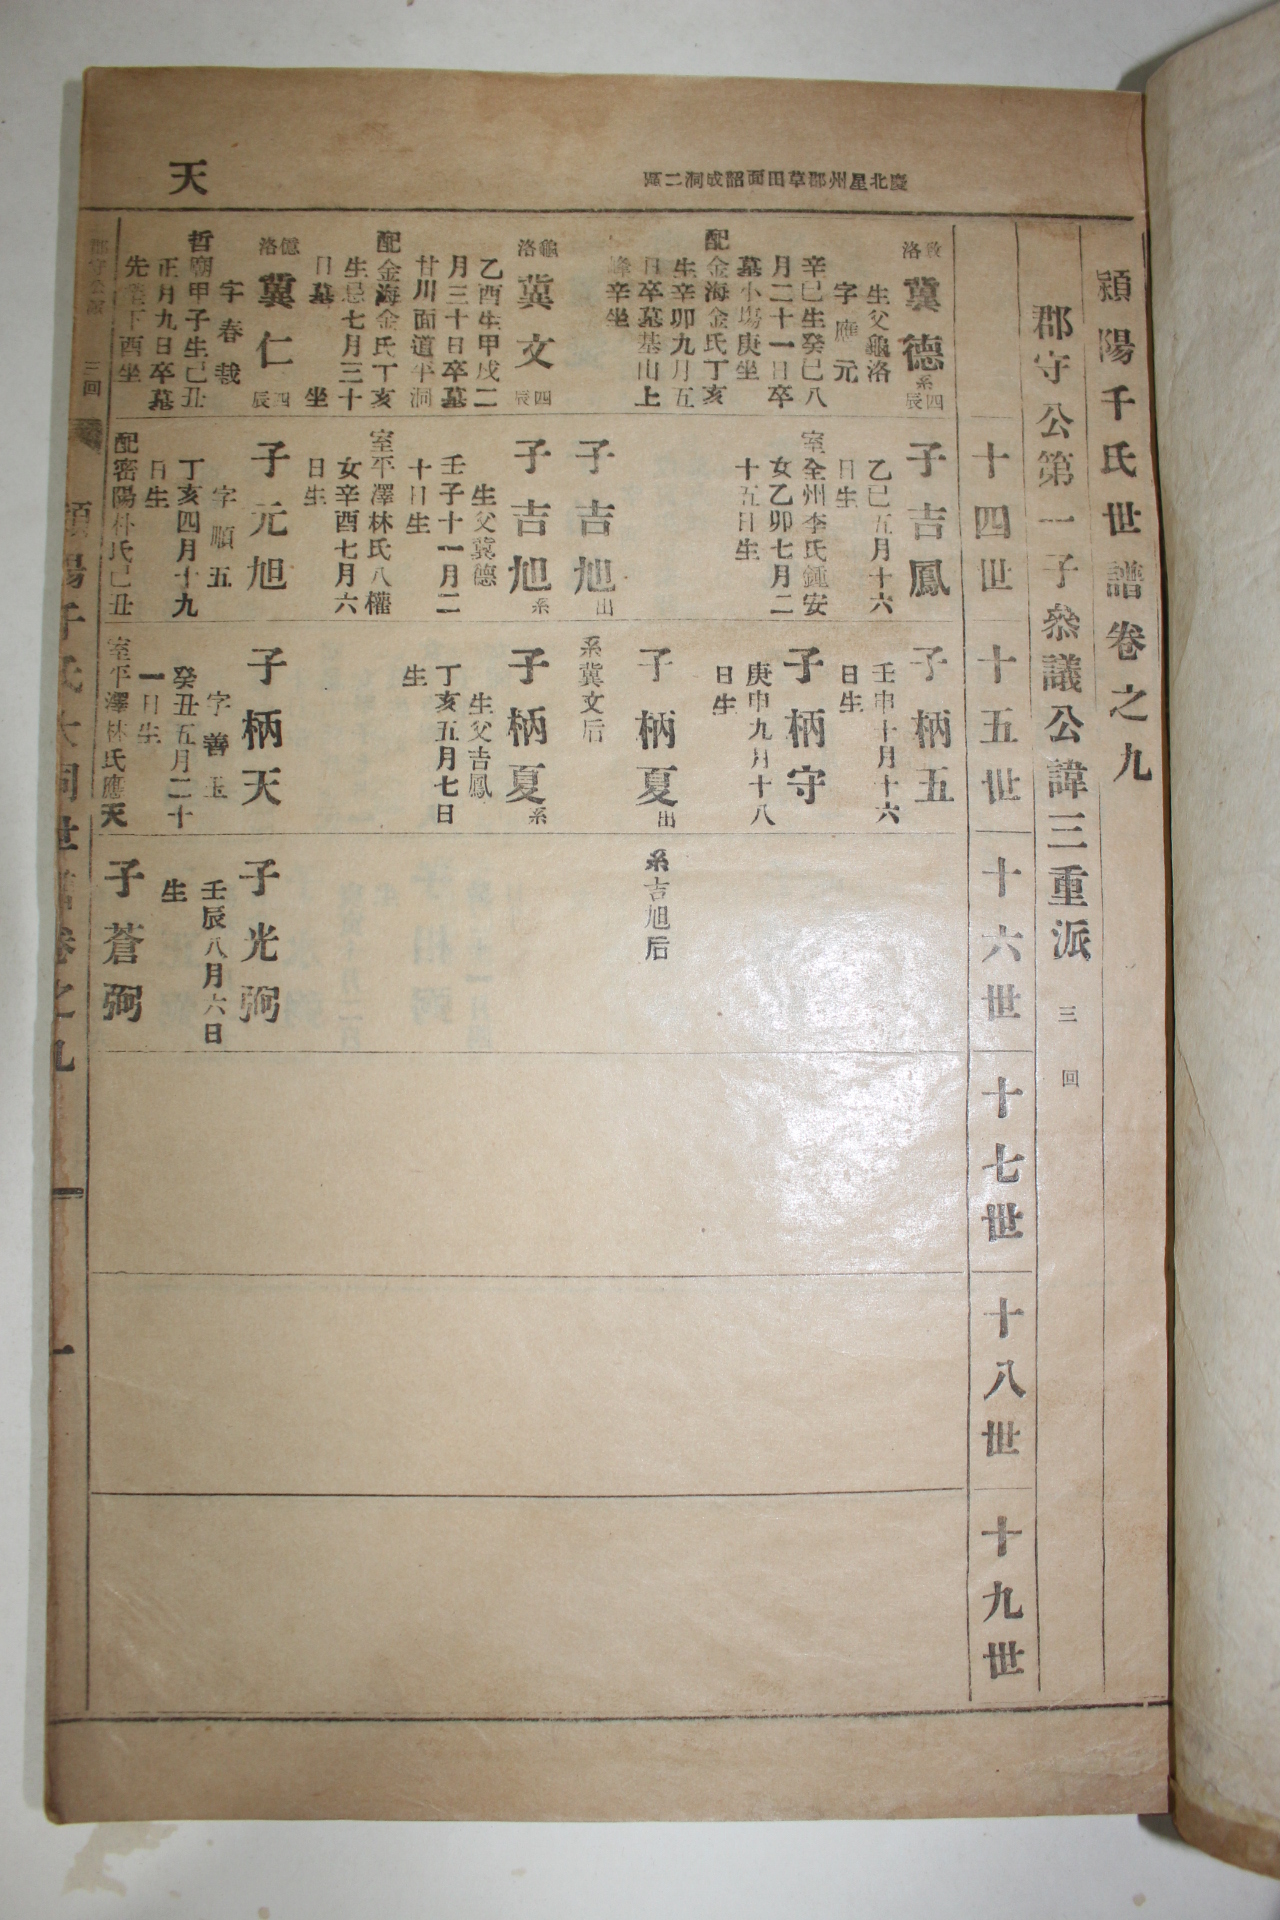 慶北星州郡草田面韶成洞二區
天
潁陽千氏世譜卷之九
郡守公第一子叅議公諱三重派 三回
十四世
十五世
十六世
十七世
十八世
十九世
洛
冀德 系 四辰
生父龜洛
字應元
辛巳生癸巳八
月二十一日卒
墓小塲庚坐
配金海金氏丁亥
生辛卯九月五
日卒墓基山上
峰辛坐
龜洛
冀文 四辰
乙酉生甲戌二
月三十日卒墓
甘川面道平洞
配金海金氏丁亥
生忌七月三十
日墓 坐
億洛
冀仁 四辰
字春載
哲廟甲子生己丑
正月九日卒墓
先塋下酉坐
子吉鳳
乙巳五月十六
日生
室全州李氏鍾安
女乙卯七月二
十五日生
子吉旭 出
系冀文后
子吉旭 系
生父冀德
壬子十一月二
十日生
室平澤林氏八權
女辛酉七月六
日生
子元旭
字順五
丁亥四月十九
日生
配密陽朴氏己丑
子柄五
壬申十月十六
日生
子柄守
庚申九月十八
日生
子柄夏 出
系吉旭后
子柄夏 系
生父吉鳳
丁亥五月七日
生
子柄天
字善玉
癸丑五月二十
一日生
室平澤林氏應天
子光弼
壬辰八月六日
生
子蒼弼
郡守公派 三回
潁陽千氏大同世譜卷之九
一